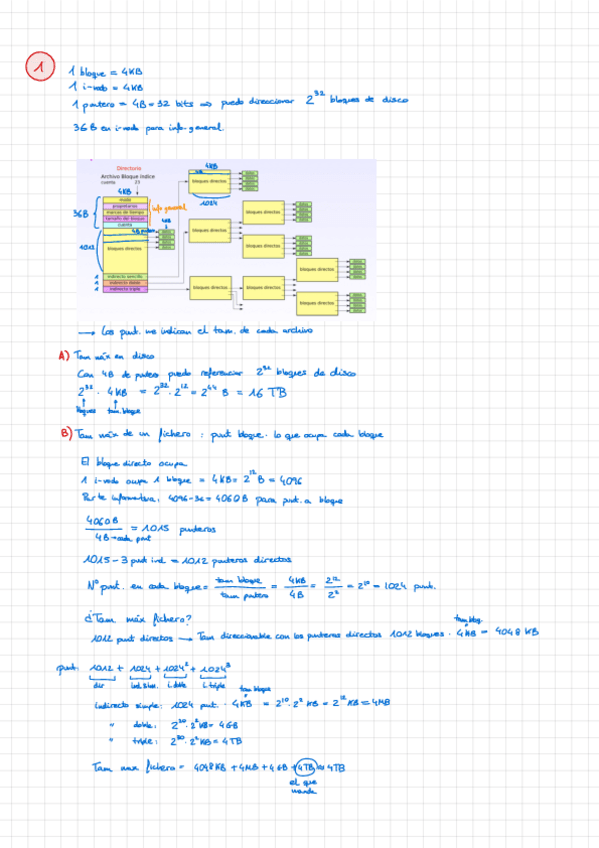 1
1 bloque = 4KB
1 i-nodo = 4KB
1 puntero = 4B = 32 bits => puedo direccionar 2^32 bloques de disco
36B en i-nodo para info-general.
Directorio
Archivo Bloque índice
cuenta 23
4KB
modo
propietarios
marcas de tiempo
tamaño del bloque
cuenta
36B
info general
4B puntero
4KB
1012
bloques directos
1 indirecto sencillo
1 indirecto doble
1 indirecto triple
datos
datos
datos
datos
4KB
bloques directos
1024
datos
datos
datos
datos
bloques directos
bloques directos
datos
datos
datos
datos
bloques directos
datos
datos
datos
datos
bloques directos
bloques directos
bloques directos
datos
datos
datos
datos
bloques directos
datos
datos
datos
datos
→ Los punt. me indican el tam. de cada archivo
A) Tam máx en disco
Con 4B de puntero puedo referenciar 2^32 bloques de disco
2^32 · 4KB = 2^32 · 2^12 = 2^44 B = 16 TB
bloques tam. bloque
B) Tam máx de un fichero : punt bloque · lo que ocupa cada bloque
El bloque directo ocupa
1 i-nodo ocupa 1 bloque = 4KB = 2^12 B = 4096
Parte informativa: 4096-36 = 4060B para punt. a bloque
4060B / 4B→cada punt = 1015 punteros
1015 - 3 punt ind = 1012 punteros directos
Nº punt. en cada bloque = tam bloque / tam puntero = 4KB / 4B = 2^12 / 2^2 = 2^10 = 1024 punt.
¿Tam máx fichero?
tam bloq.
1012 punt directos → Tam direccionable con los punteros directos 1012 bloques · 4KB = 4048 KB
punt. 1012 + 1024 + 1024^2 + 1024^3
dir ind. sim. i. doble i. triple
tam bloque
indirecto simple: 1024 punt. · 4KB = 2^10 · 2^2 KB = 2^12 KB = 4MB
" doble: 2^20 · 2^2 KB = 4GB
" triple: 2^30 · 2^2 KB = 4TB
Tam max fichero = 4048KB + 4MB + 4GB + 4TB ≈ 4TB
el que
manda